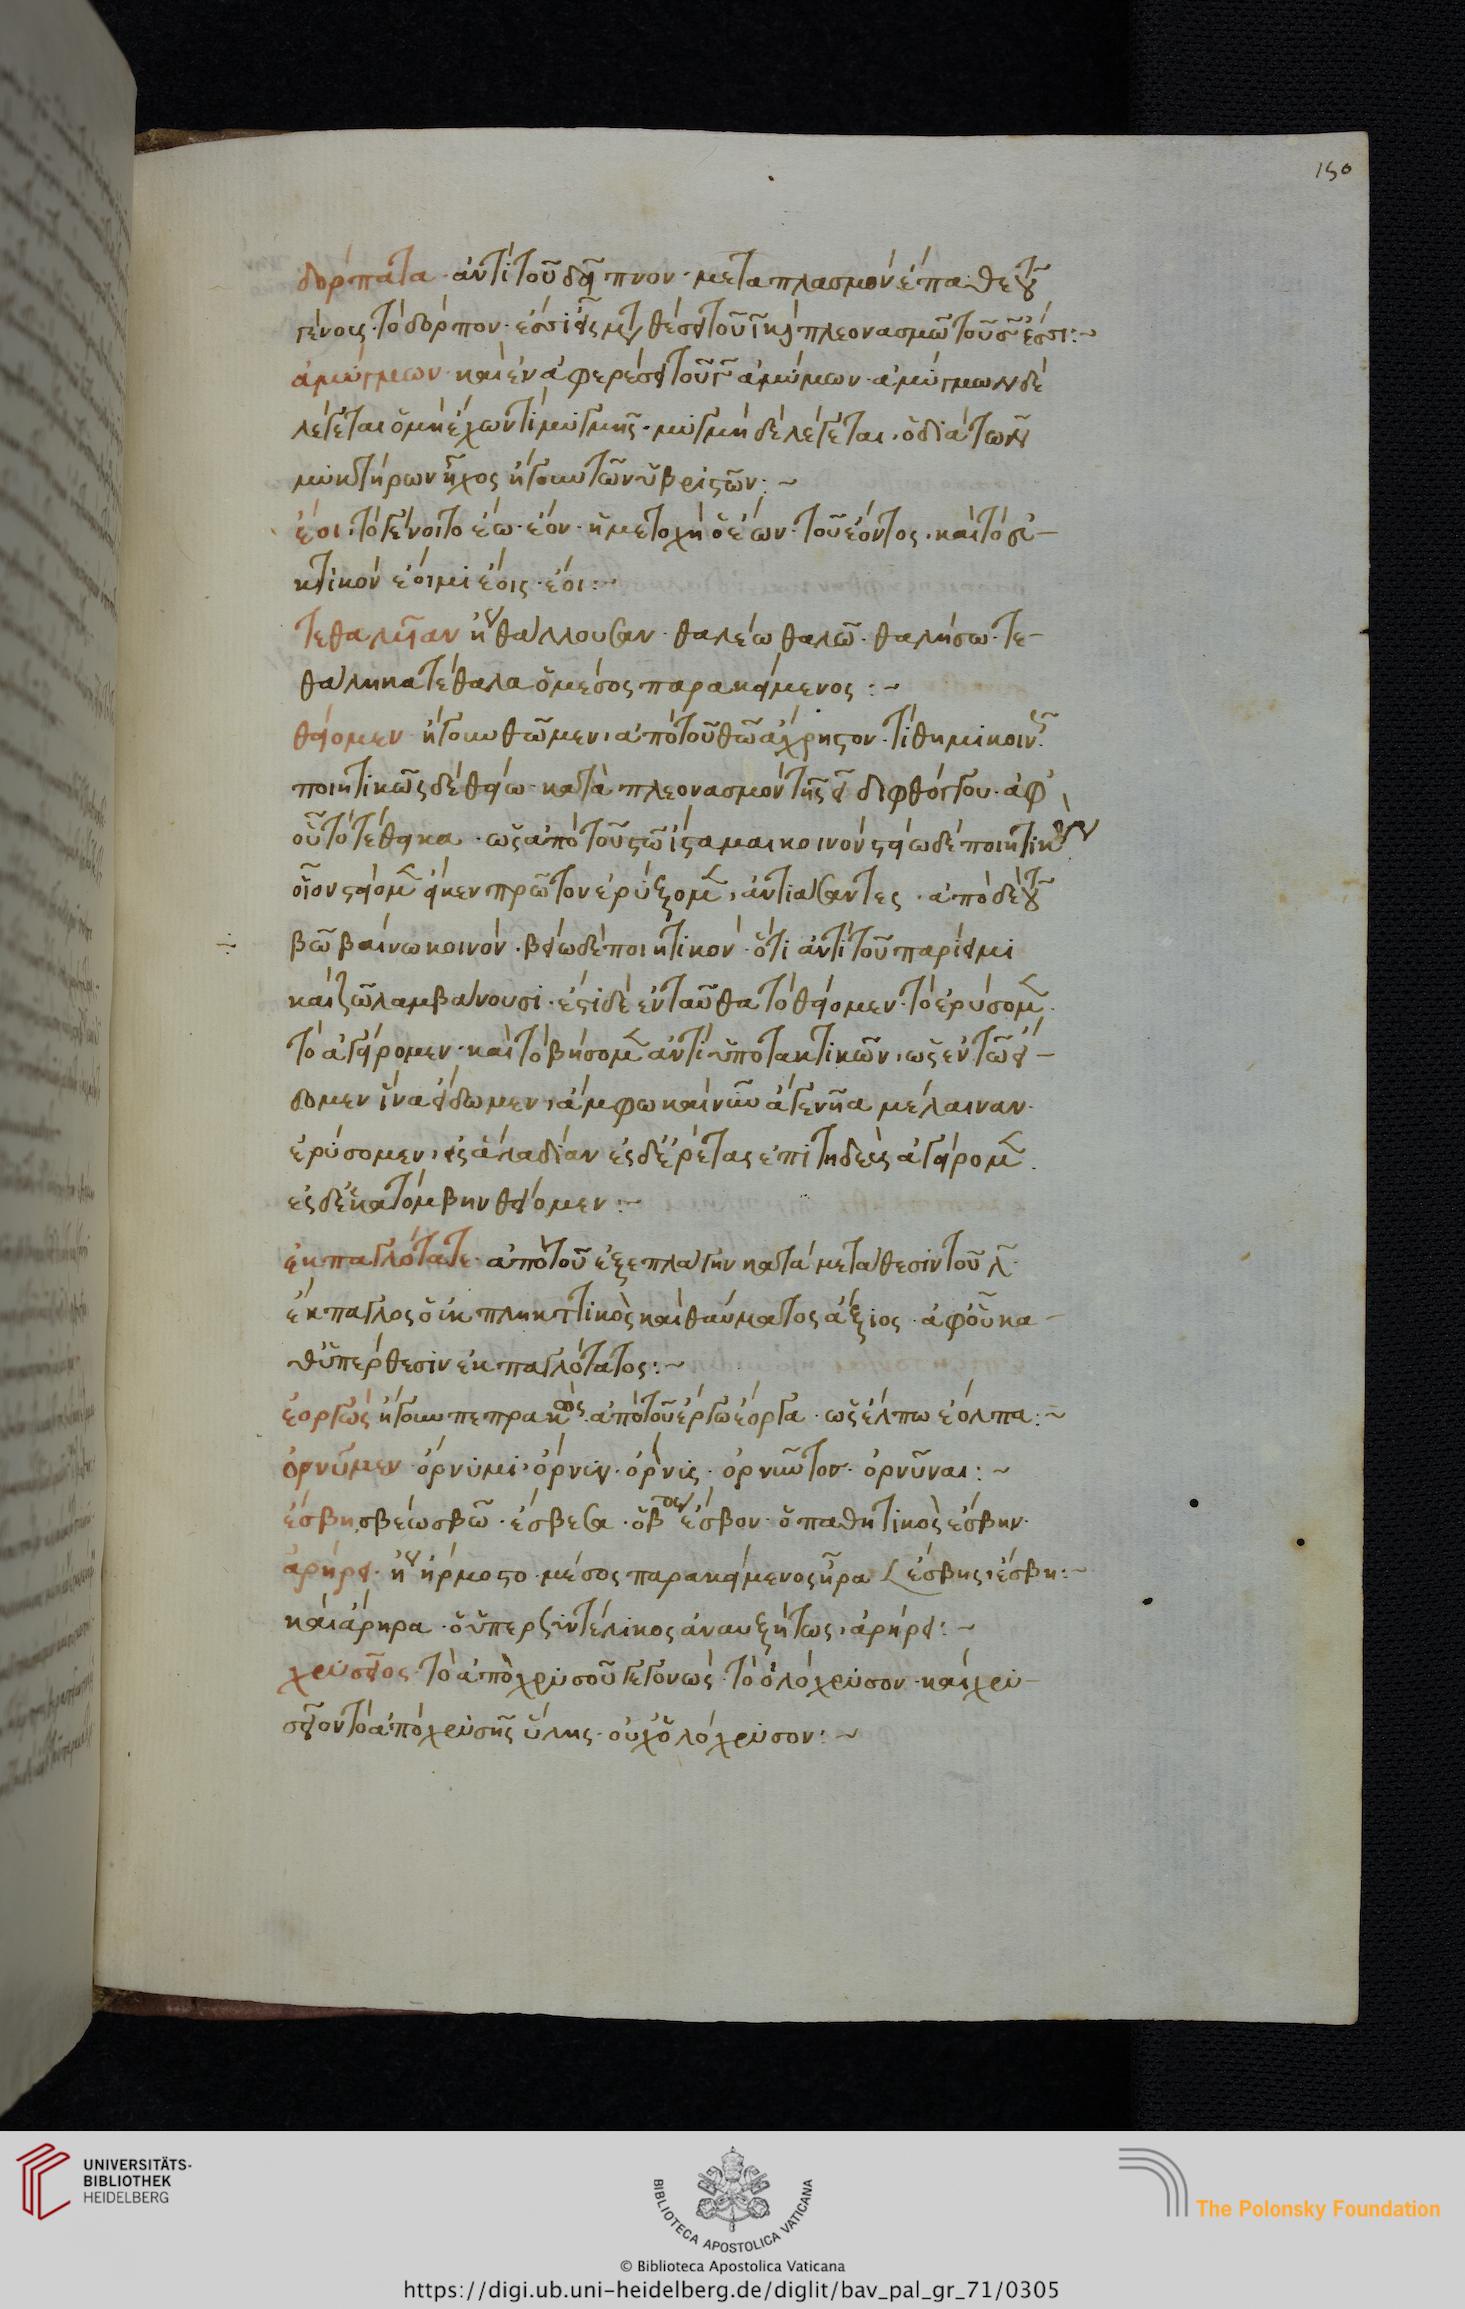 150
δόρπατα· ἀντὶ τοῦ δεῖπνον· μεταπλασμὸν ἔπαθε τοῦ
γένους· τὸ δόρπον· ἐσσι εἶς θέσει τοῦ ι καὶ πλεονασμῶ τοῦ σ ἔσσι:~
ἀμύγμων· καὶ ἐν ἀφερέσει τοῦ γ ἀμύμων· ἀμύγμων δὲ
λέγεται ὁ μὴ ἔχων τι μυγμῆς· μυγμὴ δὲ λέγεται, ὁ διὰ τῶν
μυκτήρων ἦχος ἤγουν τῶν ὑβριστῶν:~
ἔοι, τὸ γένοιτο ἔω· ἔον· ἡ μετοχὴ ὁ ἐών· τοῦ ἐόντος, καὶ τὸ εὐ-
κτικὸν ἔοιμι ἔοις· ἔοι:~
τεθαλυῖαν θάλλουσαν· θαλέω θαλῶ· θαλήσω· τε-
θάληκα τέθαλα ὁ μέσος παρακείμενος:~
θείομεν ἤγουν θῶμεν, ἀπὸ τοῦ θῶ ἄχρηστον· τίθημι κοινῶς
ποιητικῶς δὲ θείω κατὰ πλεονασμὸν τῆς ει διφθόγγου· ἀφ'
οὗ τὸ τέθεικα· ὡς ἀπὸ τοῦ στῶ ἵσταμαι κοινὸν στείω δὲ ποιητικὸν
οἷον στείομεν εἴκεν πρῶτον ἐρύξομεν, ἀντιάσαντες· ἀπὸ δὲ τοῦ
βῶ βαίνω κοινόν· βείω δὲ ποιητικόν· ὅτι ἀντὶ τοῦ παρίειμι
καὶ ζῶ λαμβάνουσι· ἔστι δὲ ἐνταῦθα τὸ θείομεν· τὸ ἐρύσομεν
τὸ ἀγείρομεν· καὶ τὸ βήσομεν ἀντὶ ὑποτακτικῶν, ὡς ἐν τῶ εἴ-
δομεν ἵνα εἴδωμεν, ἄμφω καὶ νῦν ἄγε νῆα μέλαιναν·
ἐρύσομεν, εἰς ἅλα δῖαν ἐς δ' ἐρέτας ἐπιτηδὲς ἀγείρομεν
ἐς δ' ἑκατόμβην θείομεν:~
ἐκπαγλότατε· ἀπὸ τοῦ ἐξεπλάγην κατὰ μετάθεσιν τοῦ λ·
ἔκπαγλος ὁ ἐκπληκτικὸς καὶ θαύματος ἄξιος· ἀφ' οὗ κα-
θ' ὑπέρθεσιν ἐκπαγλότατος:~
ἐοργώς ἤγουν πεπρακὼς· ἀπὸ τοῦ ἔργω ἔοργα· ὡς ἔλπω ἔολπα:~
ὀρνῦμεν· ὄρνυμι, ὄρνυν· ὄρνυς· ὀρνῦτον· ὀρνῦναι:~
ἔσβη σβέω σβῶ· ἔσβεσα· ὁ β ἔσβον· ὁ παθητικὸς ἔσβην·
ἀρήρει· ἥρμοστο· μέσος παρακείμενος ἦρα ἔσβης, ἔσβη:~
καὶ ἄρηρα· ὁ ὑπερσυντέλικος ἀναυξήτως, ἀρήρει:~
χρύσειος· τὸ ἀπὸ χρυσοῦ γεγονώς· τὸ ὁλόχρυσον· καὶ χρύ-
σειον τὸ ἀπὸ χρυσῆς ὕλης· οὐχ ὁλόχρυσον:~
UNIVERSITÄTS-
BIBLIOTHEK
HEIDELBERG
BIBLIOTECA APOSTOLICA VATICANA
The Polonsky Foundation
© Biblioteca Apostolica Vaticana
https://digi.ub.uni-heidelberg.de/diglit/bav_pal_gr_71/0305